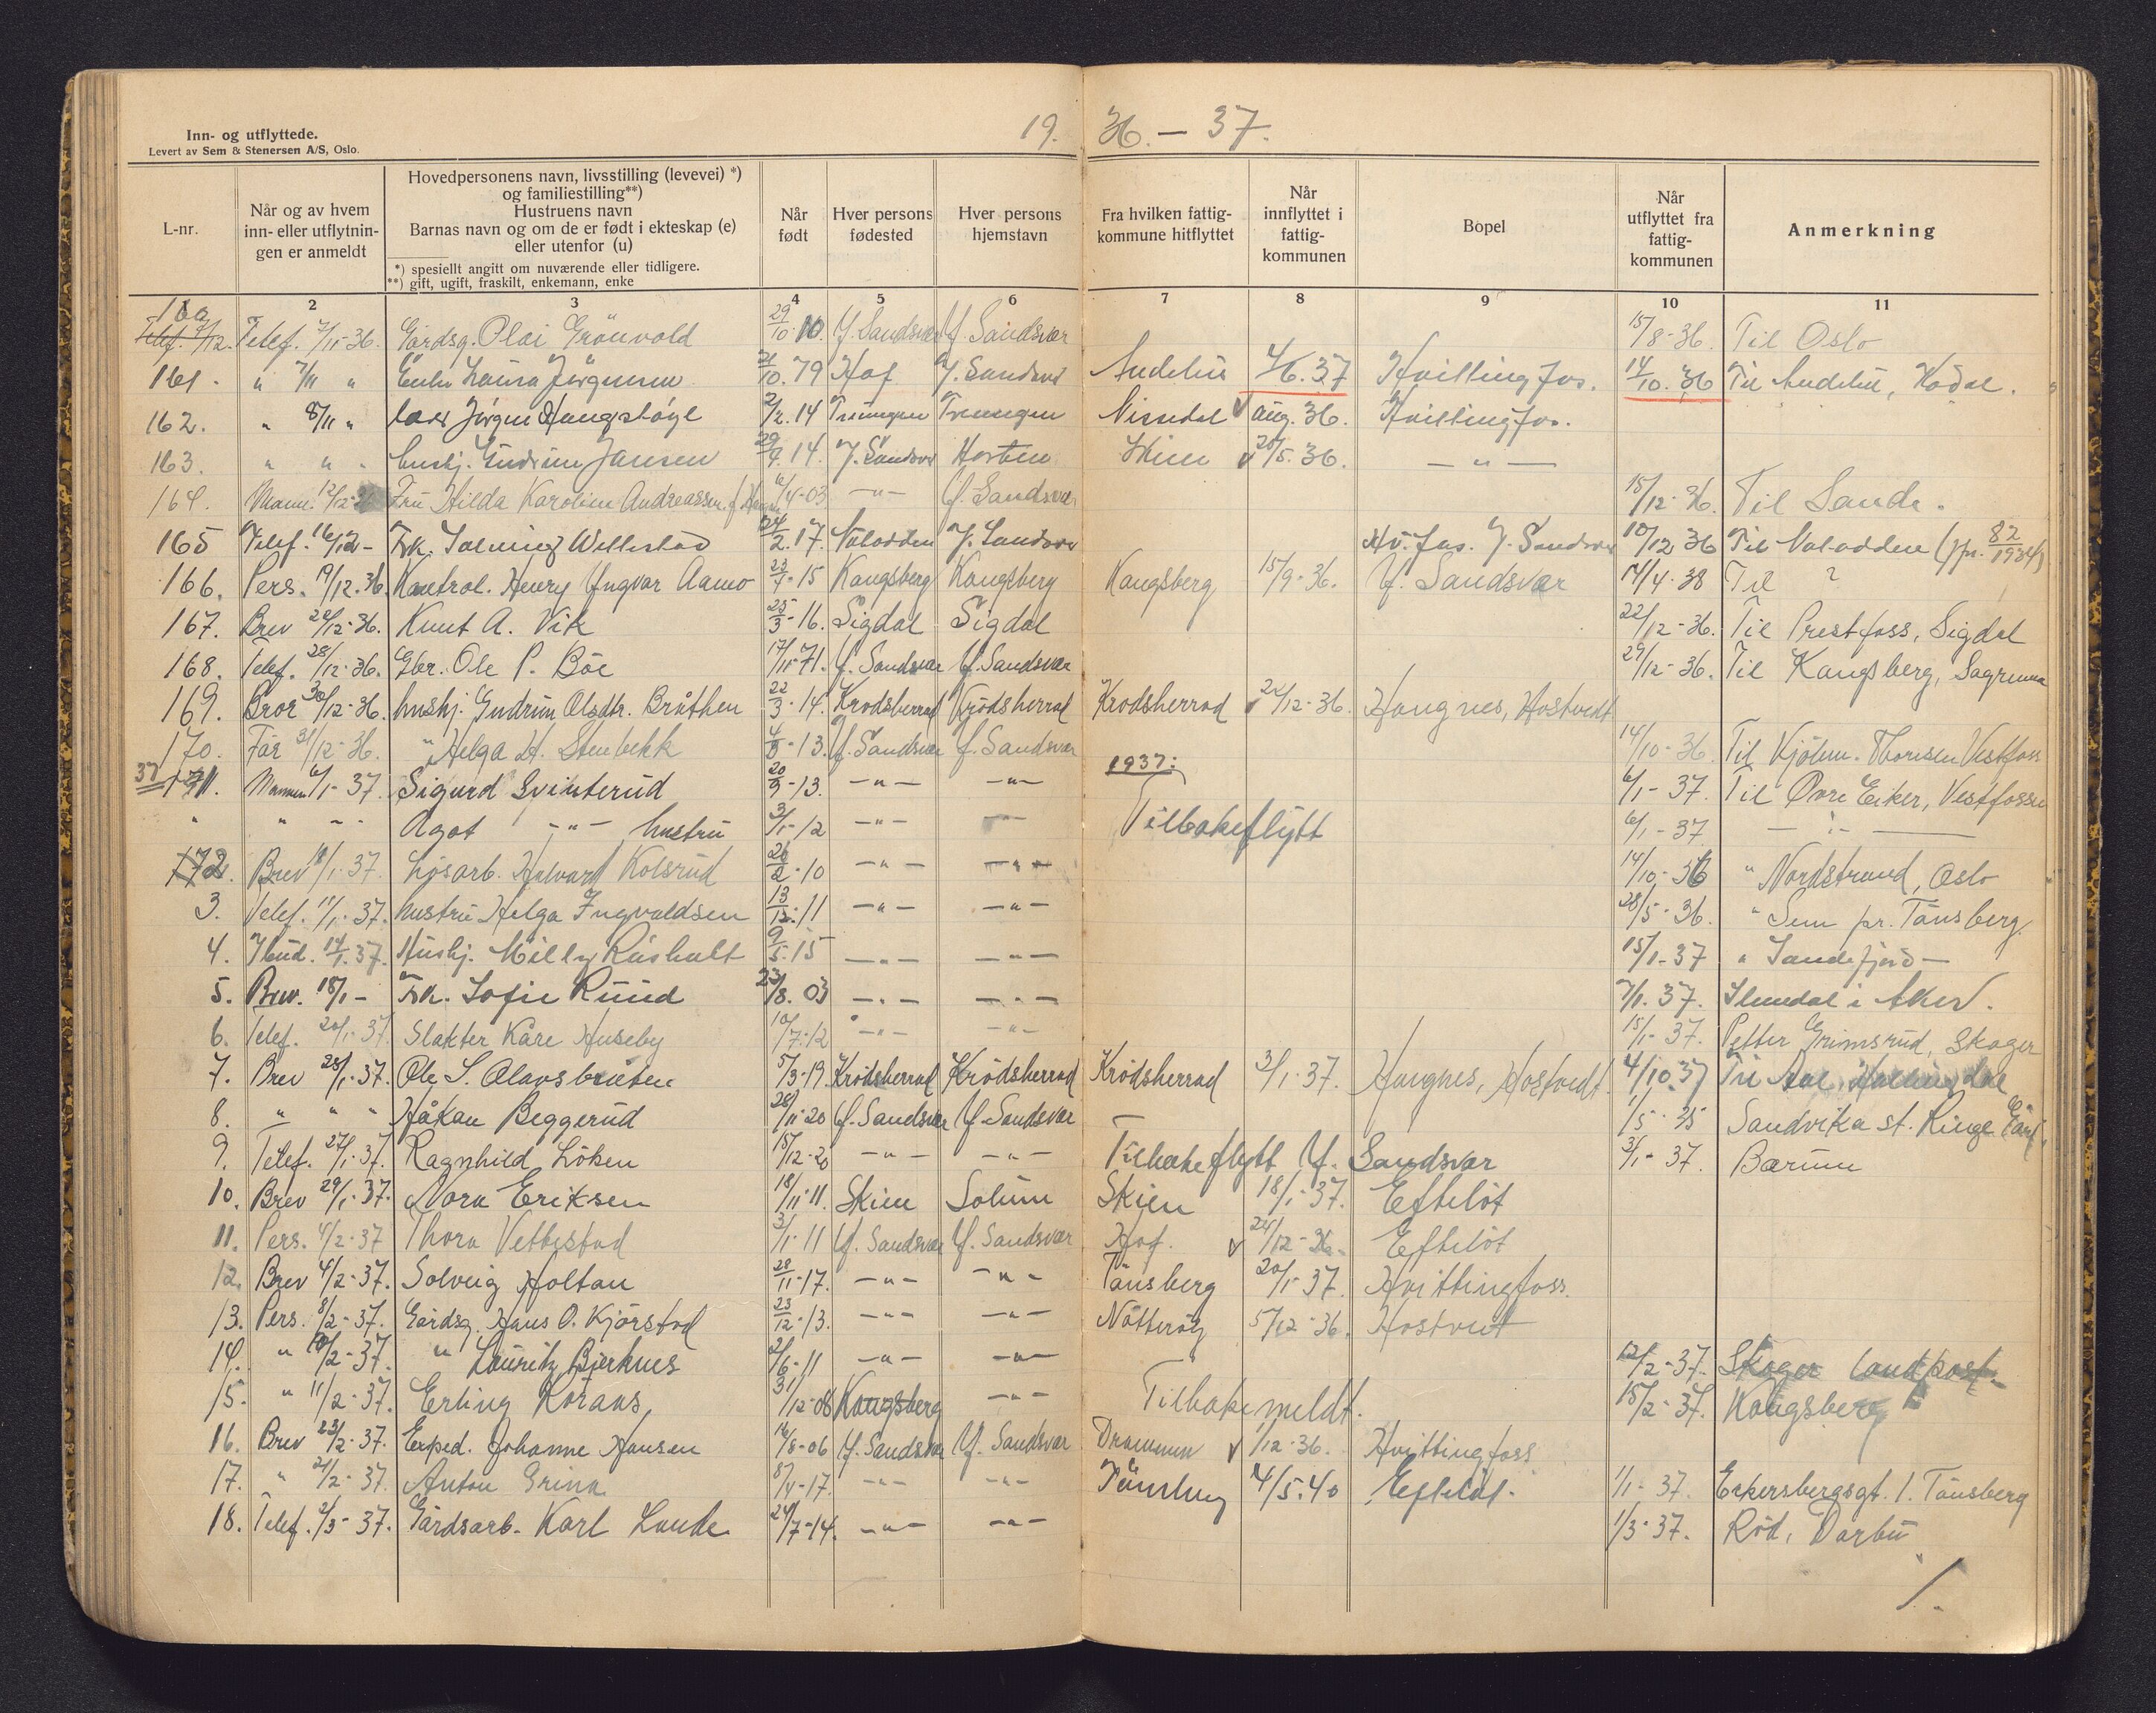 Inn- og utflyttede.
Levert av Sem & Stenersen A/S, Oslo.
19. 36. — 37.
L-nr.
Når og av hvem inn- eller utflytningen er anmeldt
Hovedpersonens navn, livsstilling (levevei) *) og familiestilling**)
Hustruens navn
Barnas navn og om de er født i ekteskap (e) eller utenfor (u)
*) spesiellt angitt om nuværende eller tidligere.
**) gift, ugift, fraskilt, enkemann, enke
Når født
Hver persons fødested
Hver persons hjemstavn
Fra hvilken fattigkommune hitflyttet
Når innflyttet i fattigkommunen
Bopel
Når utflyttet fra fattigkommunen
Anmerkning
2 3 4 5 6 7 8 9 10 11
Telef. 7/11-36. Gårdsg. Olai Grönvold 29/10-10. Y. Sandsvær Y. Sandsvær 15/8-36. Til Oslo
161. " 7/11 " Enke Laura Jørgensen 21/10.79 Hof Y. Sandsvær Andebu 4/6.37 Hvittingfos. 14/10.36 Til Andebu, Kodal.
162. " 8/11 " Jørgen Haugshøyl 2/2.14 Treungen Treungen Nissedal aug. 36. Hvittingfos.
163. " " " hushj. Gudrun Jansen 29/9.14. Y. Sandsvær Horten Skien 20/5.36. — " —
164. Mann. 12/12-36 Fru Hilda Karoline Andreassen 6/4-03 — " — Y. Sandsvær 15/12-36. Til Sande.
165 Telef. 16/12- Frk. Solveig Willestad 24/2.17. Notodden Y. Sandsvær Hv.fos. Y. Sandsvær 10/12 36 Til Notodden (jfr. 82/1934)
166. Pers. 19/12.36. Kontrol. Henry Yngvar Aamo 23/7-15 Kongsberg Kongsberg Kongsberg 15/9-36. Y. Sandsvær 14/4-38 Til ?
167. Brev 22/12-36. Knut A. Vik 25/3-16. Sigdal Sigdal 22/12-36. Til Prestfoss, Sigdal
168. Telef. 28/12-36. Gbr. Ole P. Böe 17/11-71. Y. Sandsvær Y. Sandsvær 29/12-36. Til Kongsberg, Sagrenna
169. Bror 30/12-36. hushj. Gudrun Olsdtr. Bråthen 22/3-14. Krødsherrad Krødsherrad Krødsherrad 22/12-36. Haugnes, Hostvedt
170. Far 31/12-36. " Helga H. Stenbekk 4/8-13. Y. Sandsvær Y. Sandsvær 14/10-36 Til Kjöbm. Thorsen Vestfoss
37 171. Mannen 6/1-37. Sigurd Svinterud 20/9-13. — " — — " — 1937: 6/1-37. Til Øvre Eiker, Vestfossen
" " " Agot — " — hustru 3/1-12 — " — Tilbakeflytt 6/1-37 — " —
172. Brev 18/1-37. Løsarb. Halvard Kolsrud 26/2-10 — " — — " — 14/10-36 " Nordstrand, Oslo
3. Telef. 11/1-37. hustru Helga Ingvaldsen 13/12-11 — " — — " — 28/5-36. " Sem pr. Tønsberg.
4. 14/1-37. Hushj. Milly Rusholt 9/5-15 — " — — " — 15/1-37 " Sandefjord —
5. Brev. 18/1- Frk. Sofie Ruud 23/8.03 — " — — " — 7/1.37. i Aker.
6. Telef. 20/1-37. Slakter Kåre Huseby 10/7-12 — " — — " — 15/1-37. Petter Grimsrud, Skoger
7. Brev 28/1-37. Ole S. Olavsbråten 5/3-19. Krødsherrad Krødsherrad Krødsherrad 3/1-37. Haugnes, Hostvedt 4/10.37 Til Aal, Hallingdal
8. " " " Håkan Beggerud 28/11-20 Y. Sandsvær Y. Sandsvær 1/5-35 Sandvika st.
9. Telef. 27/1-37. Ragnhild Løken 15/12-20 — " — — " — Tilbakeflytt Y. Sandsvær 3/1-37. Bærum
10. Brev 29/1-37. Nora Eriksen 18/11-11. Skien Solum Skien 18/1-37. Efteløt
11. Pers. 4/2-37 Thora Vettestad 3/1-11 Y. Sandsvær Y. Sandsvær Hof. 24/12-36. Efteløt
12. Brev 4/2-37. Solveig Holtan 28/11-17. — " — — " — Tønsberg 20/1-37. Hvittingfoss.
13. Pers. 8/2-37. Gårdsg. Hans O. Kjørstad 23/12-13. — " — — " — Nøtterøy 5/12-36. Hostvet
14. " 10/2-37. " Lauritz Bjerknes 2/6-11 — " — — " — 12/2-37. Skoger landpost.
15. " 11/2-37. Erling Korans, 31/12-08 Kongsberg — " — Tilbakemeldt. 15/2-37. Kongsberg
16. Brev 23/2-37. Exped. Johanne Hansen 14/8-06 Y. Sandsvær Y. Sandsvær Drammen 1/12-36. Hvittingfoss
17. " 21/2-37. Anton Grina 8/4-17. — " — — " — Tønsberg 4/5.40 Efteløt. 1/1-37. Eckersbergsgt. 1. Tønsberg
18. Telef. 2/3-37. Gårdsarb. Karl Lunde 24/7-14. — " — — " — 1/3-37. Röd, Darbu